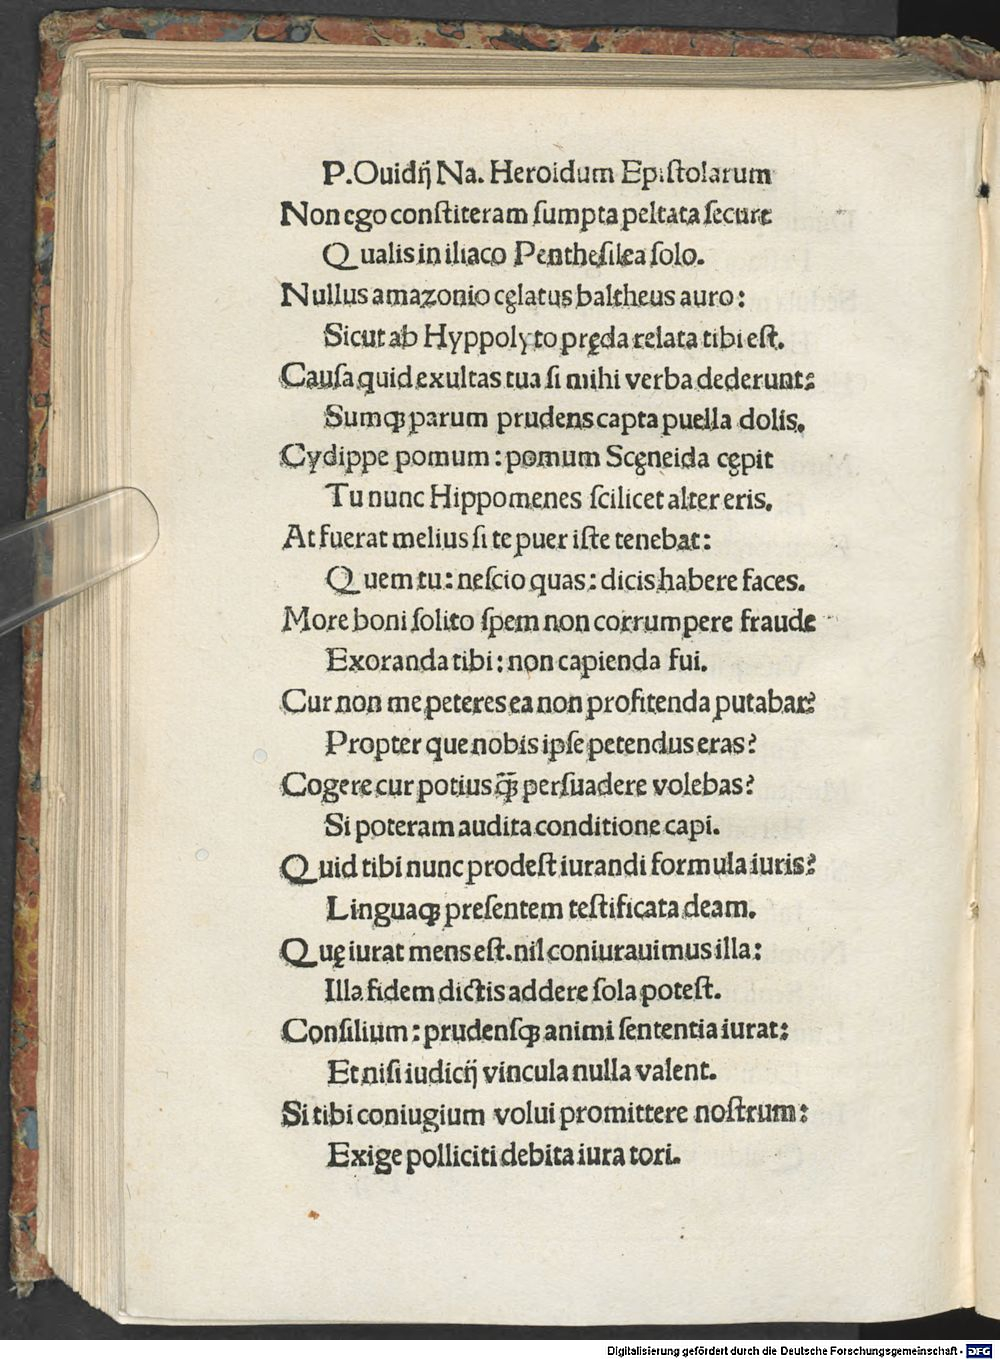 P. Ouidij Na. Heroidum Epiſtolarum
Non ego conſtiteram ſumpta peltata ſecure
Qualis in iliaco Pentheſilea ſolo.
Nullus amazonio cęlatus baltheus auro:
Sicut ab Hyppolyto pręda relata tibi eſt.
Cauſa quid exultas tua ſi mihi verba dederunt:
Sumqꝫ parum prudens capta puella dolis.
Cydippe pomum: pomum Scęneida cępit
Tu nunc Hippomenes ſcilicet alter eris.
At fuerat melius ſi te puer iſte tenebat:
Quem tu: neſcio quas: dicis habere faces.
More boni ſolito ſpem non corrumpere fraude
Exoranda tibi: non capienda fui.
Cur non me peteres ea non profitenda putabar?
Propter que nobis ipſe petendus eras?
Cogere cur potius qꝫ̃ perſuadere volebas?
Si poteram audita conditione capi.
Quid tibi nunc prodeſt iurandi formula iuris?
Linguaqꝫ preſentem teſtificata deam.
Quę iurat mens eſt. nil coniurauimus illa:
Illa fidem dictis addere ſola poteſt.
Conſilium: prudenſqꝫ animi ſententia iurat:
Et niſi iudicij vincula nulla valent.
Si tibi coniugium volui promittere noſtrum:
Exige polliciti debita iura tori.
Digitalisierung gefördert durch die Deutsche Forschungsgemeinschaft - DFG